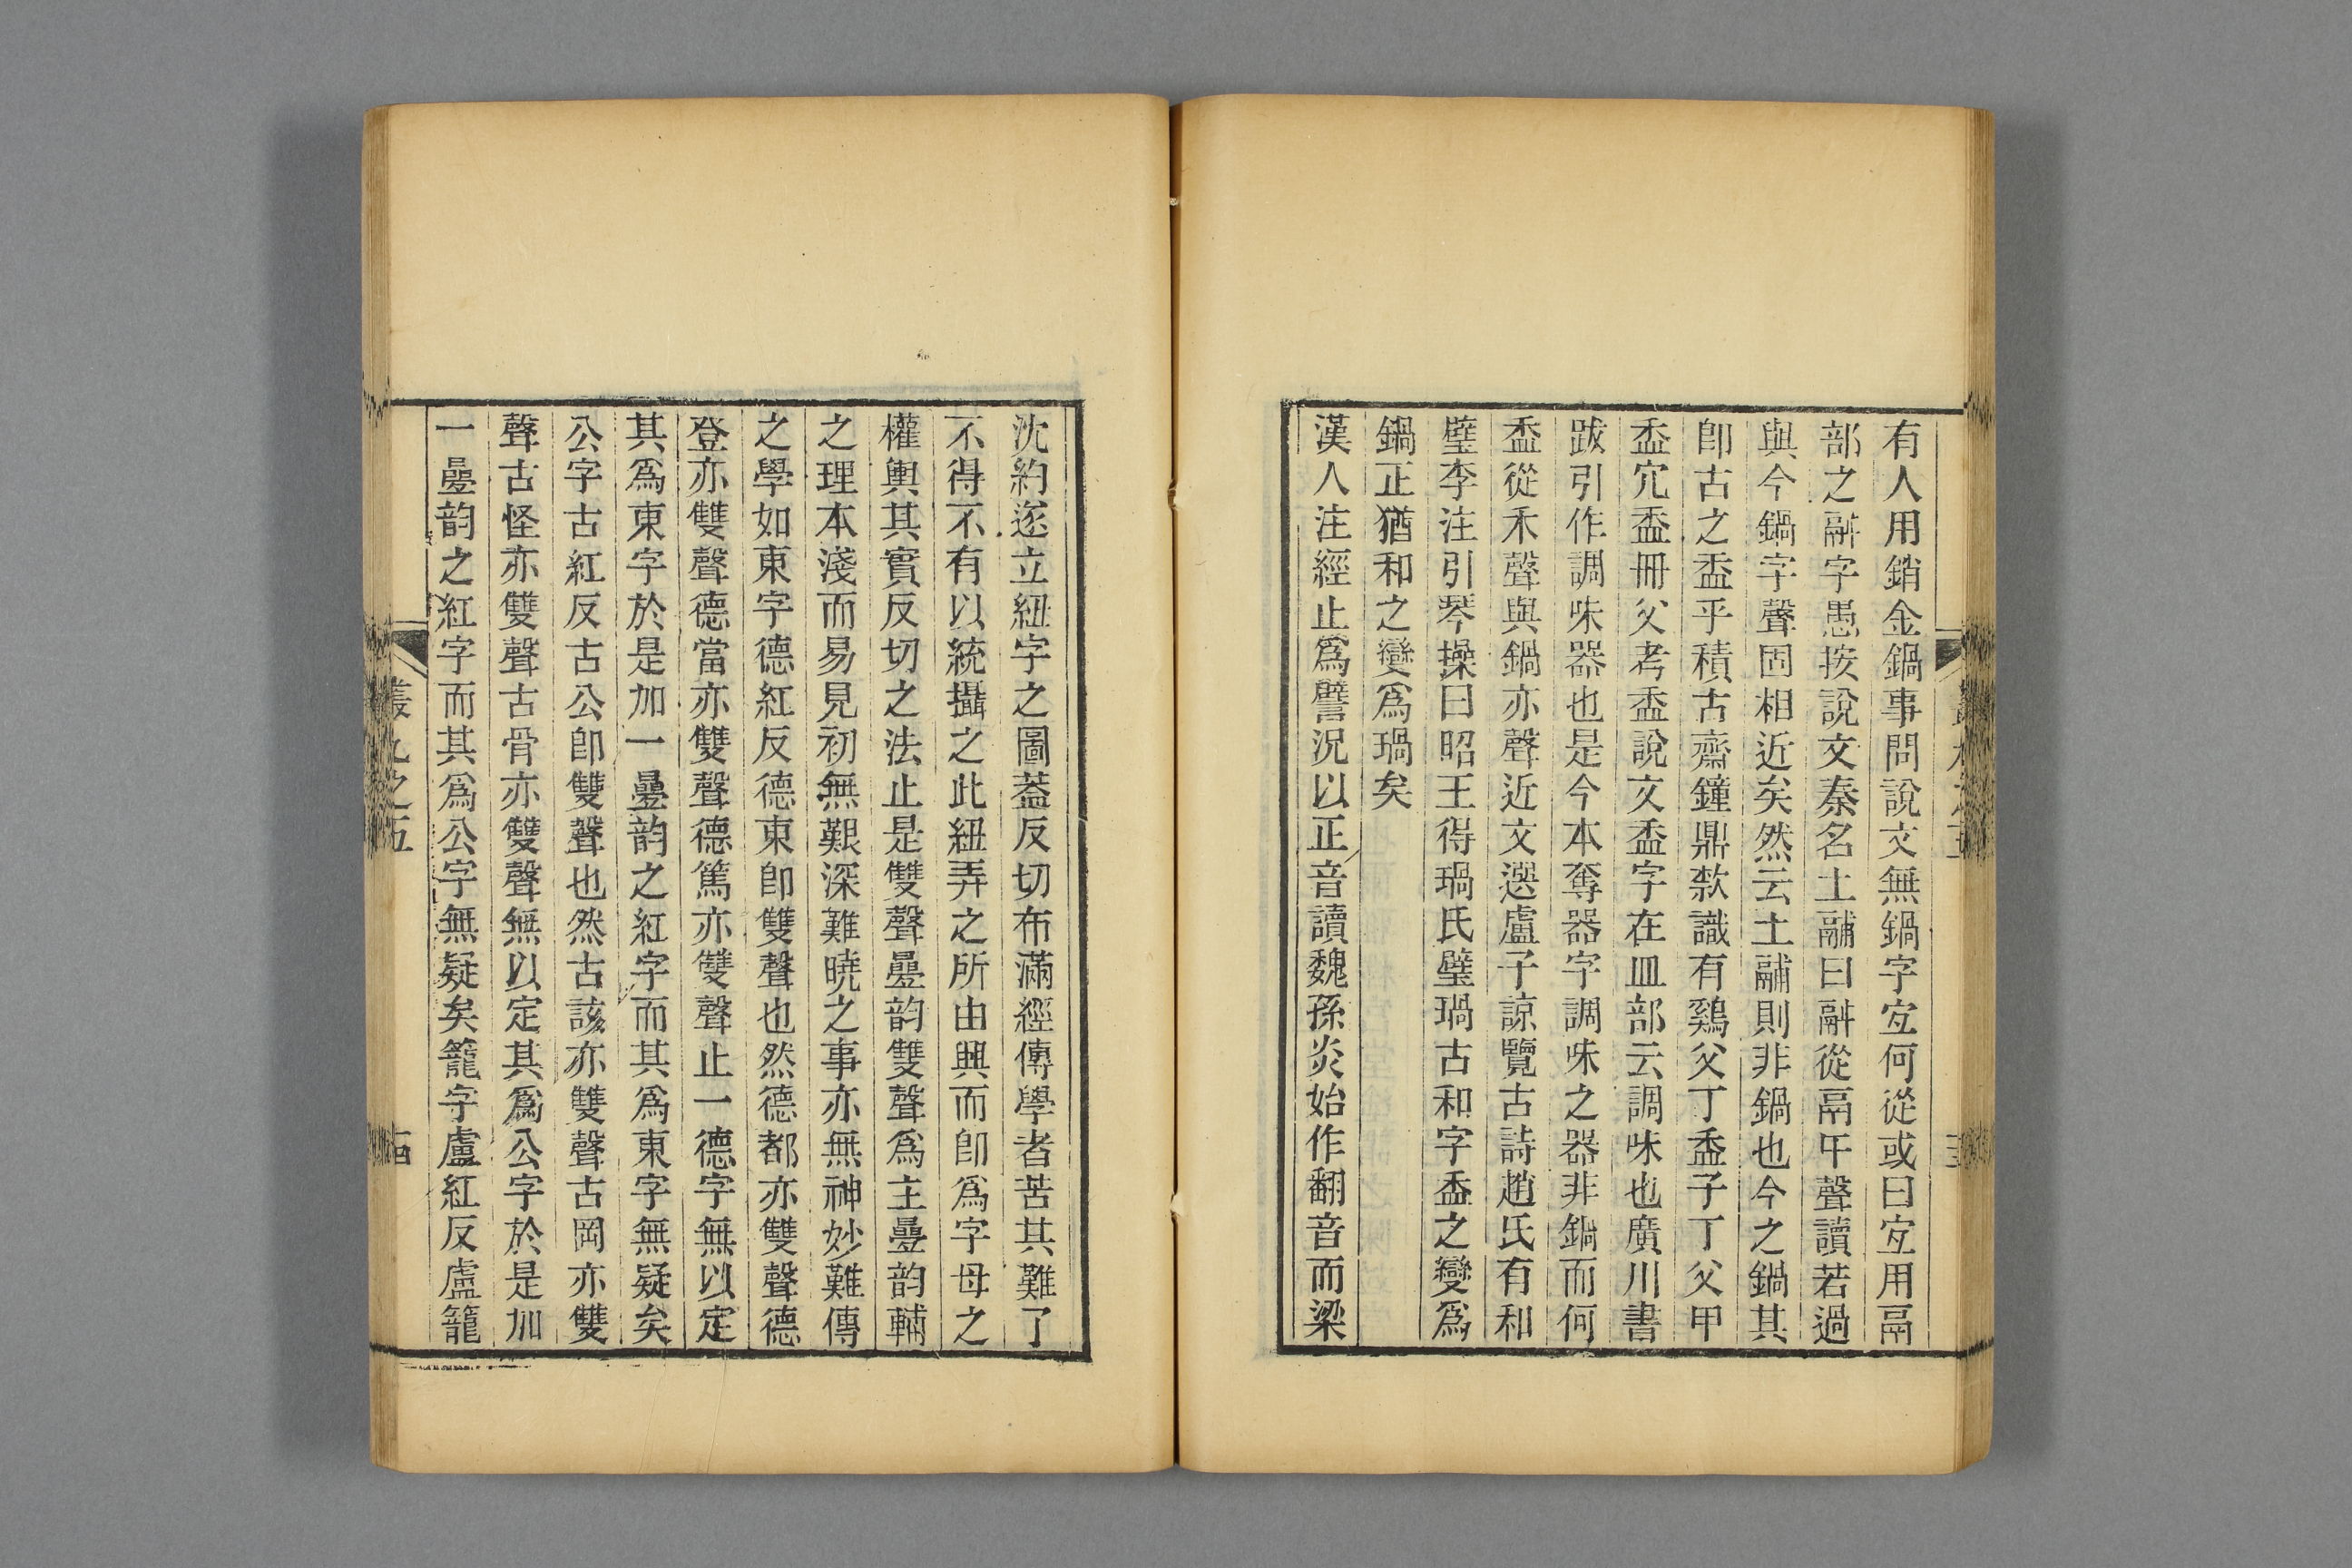 有人用銷金鍋事問說文無鍋字宐何從或曰宐用鬲
部之䰙字愚按說文秦名土釜曰䰙從鬲㐄聲讀若過
與今鍋字聲固相近矣然云土釜則非鍋也今之鍋其
卽古之盉乎積古齋鐘鼎款識有鷄父丁盉子丁父甲
盉宂盉冊父考盉說文盉字在皿部云調味也廣川書
跋引作調味器也是今本奪器字調味之器非鍋而何
盉從禾聲與鍋亦聲近文選盧子諒覽古詩趙氏有和
璧李注引琴操曰昭王得瑦氏璧瑦古和字盉之變爲
鍋正猶和之變爲瑦矣
漢人注經止爲譬況以正音讀魏孫炎始作翻音而梁
沈約遂立紐字之圖蓋反切布滿經傳學者苦其難了
不得不有以統攝之此紐弄之所由興而卽爲字母之
權輿其實反切之法止是雙聲曡韵雙聲爲主曡韵輔
之理本淺而易見初無艱深難曉之事亦無神妙難傳
之學如東字德紅反德東卽雙聲也然德都亦雙聲德
登亦雙聲德當亦雙聲德篤亦雙聲止一德字無以定
其爲東字於是加一曡韵之紅字而其爲東字無疑矣
公字古紅反古公卽雙聲也然古該亦雙聲古岡亦雙
聲古怪亦雙聲古骨亦雙聲無以定其爲公字於是加
一曡韵之紅字而其爲公字無疑矣籠字盧紅反盧籠
叢九之五